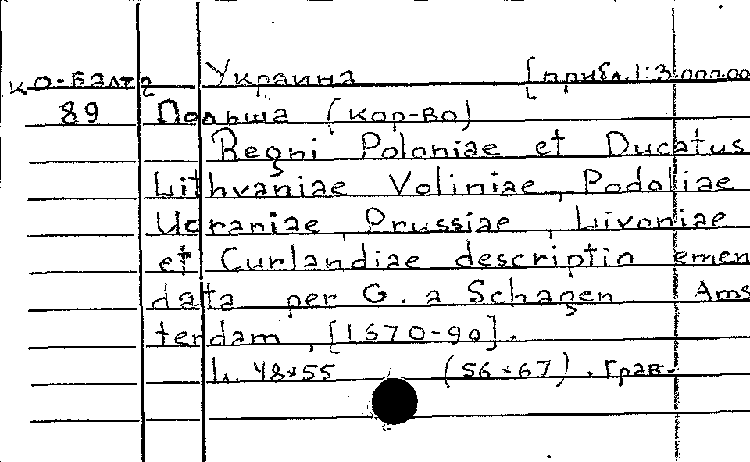 Ко-Балт 2 Украина [прибл. 1:3 00000
89 Польша (кор-во)
Regni Poloniae et Ducatus
Lithvaniae Voliniae, Podoliae
Ucraniae, Prussiae, Livoniae
et Curlandiae descriptio emen
data per G. a Schagen Ams
terdam, [1670-90].
48×55 (56×67). Грав.